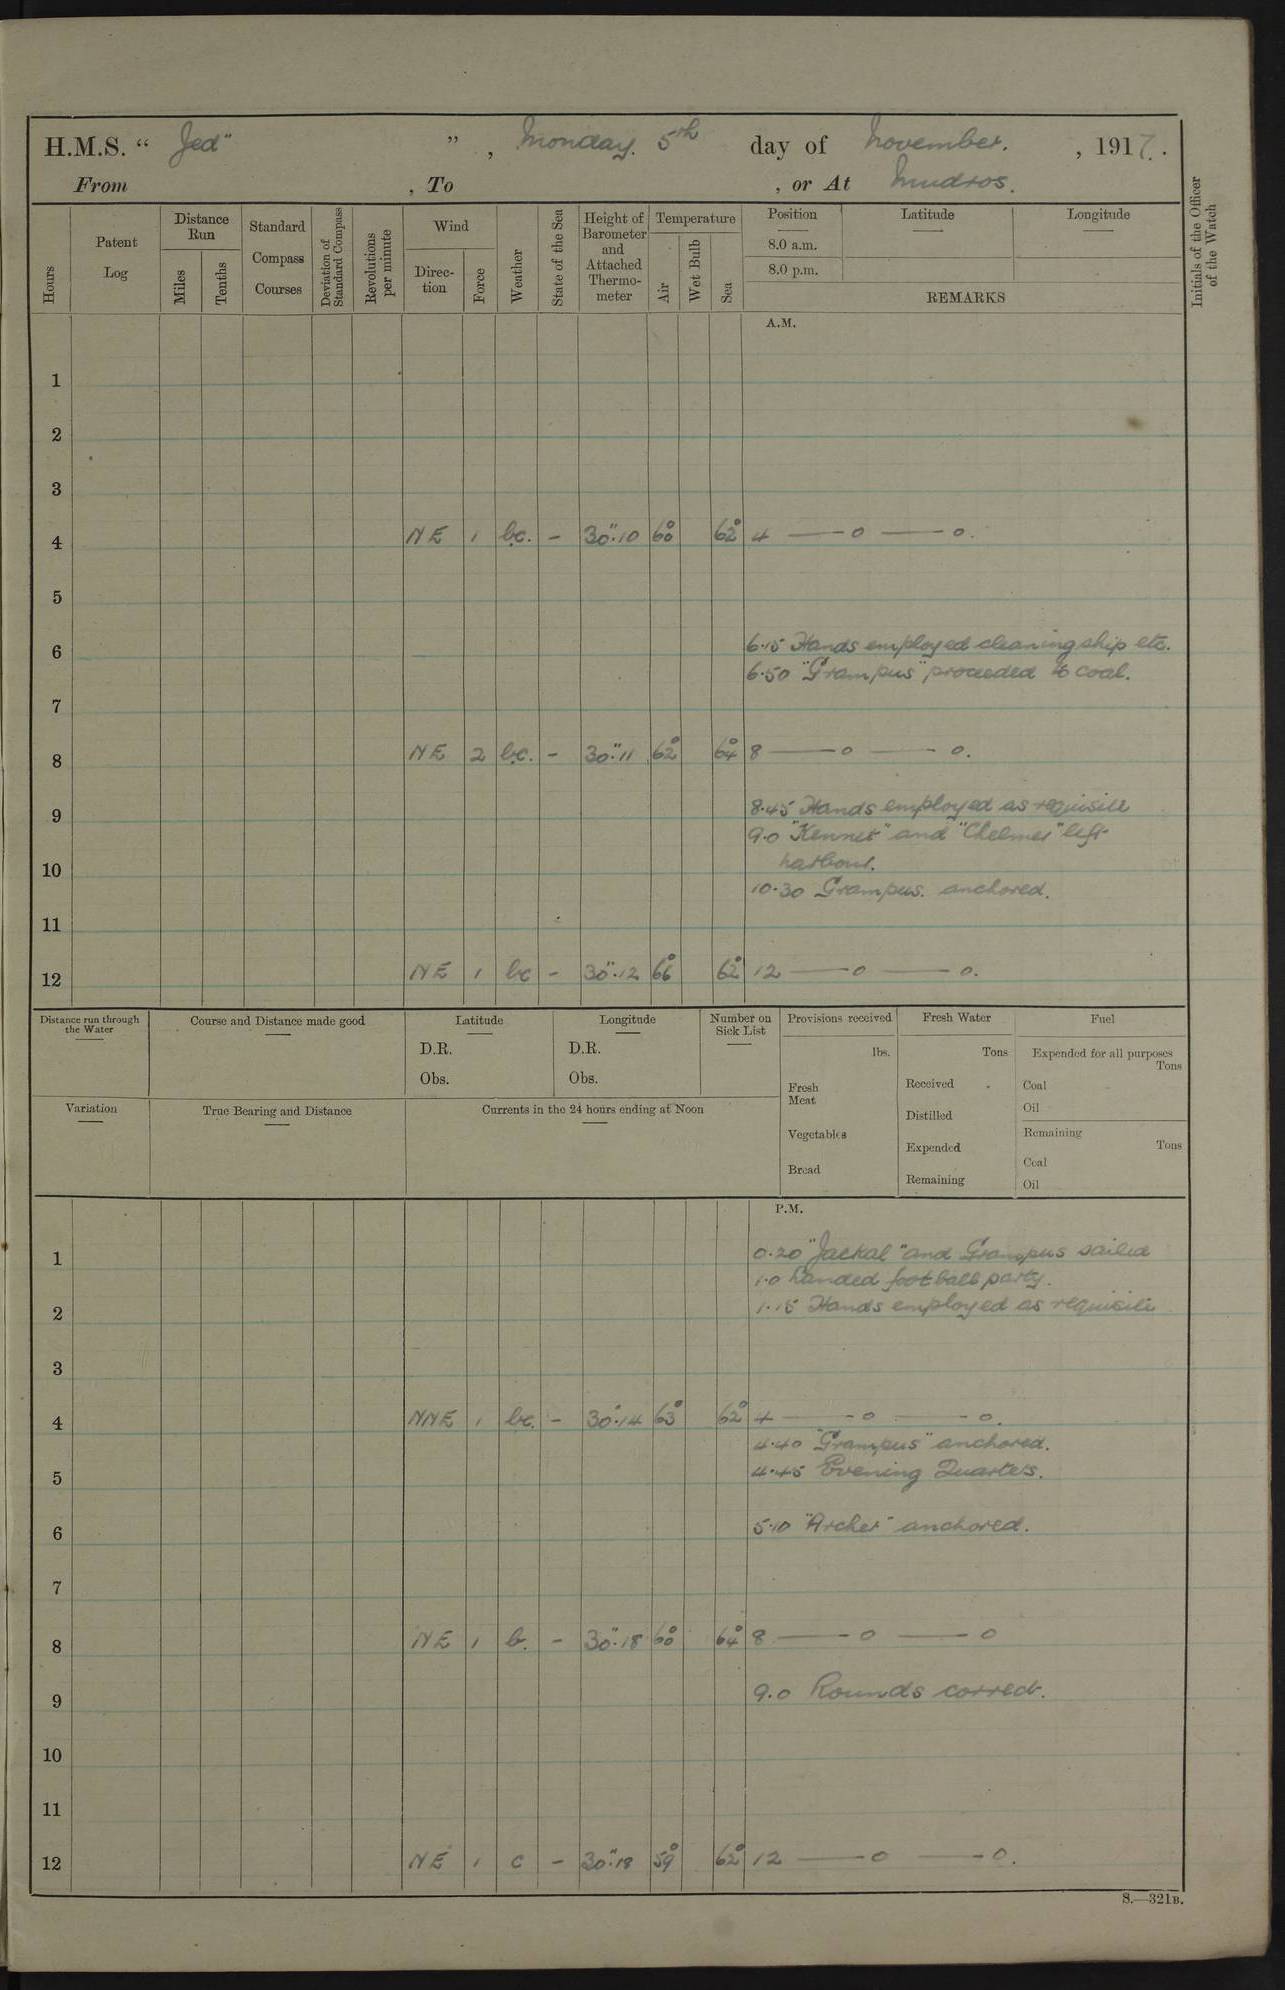 H.M.S. “ Jed” ” , Monday. 5th day of November. , 1917.
From , To , or At Mudros.
Hours Patent Log Distance Run Miles Tenths Standard Compass Courses Deviation of Standard Compass Revolutions per minute Wind Direc-tion Force Weather State of the Sea Height of Barometer and Attached Thermo-meter Temperature Air Wet Bulb Sea Position Latitude Longitude Initials of the Officer of the Watch
8.0 a.m.
8.0 p.m.
REMARKS
A.M.
1
2
3
4 NE 1 bc. - 30".10 60° 62° 4 —— o —— o.
5
6 6.15 Hands employed cleaning ship etc.
6.50 "Grampus" proceeded to coal.
7
8 NE 2 bc. - 30".11 62° 64° 8 —— o —— o.
9 8.45 Hands employed as requisite
9.0 "Kennet" and "Chelmer" left
10 harbour.
10.30 Grampus. anchored.
11
12 NE 1 bc - 30".12 66° 62° 12 —— o —— o.
Distance run through the Water Course and Distance made good Latitude Longitude Number on Sick List Provisions received Fresh Water Fuel
D.R. D.R. lbs. Tons Expended for all purposes Tons
Obs. Obs. Fresh Meat Received Coal
Variation True Bearing and Distance Currents in the 24 hours ending at Noon Distilled Oil
Vegetables Expended Remaining Tons
Bread Remaining Coal
Oil
P.M.
1 0.20 "Jackal" and Grampus sailed
1.0 Landed football party.
2 1.15 Hands employed as requisite
3
4 NNE 1 bc. - 30".14 63° 62° 4 —— o —— o.
4.40 "Grampus" anchored.
5 4.45 Evening Quarters.
6 5.10 "Archer" anchored.
7
8 NE 1 b. - 30".18 60° 64° 8 —— o —— o
9 9.0 Rounds correct.
10
11
12 NE 1 c - 30".18 59° 62° 12 —— o —— o.
S.—321B.